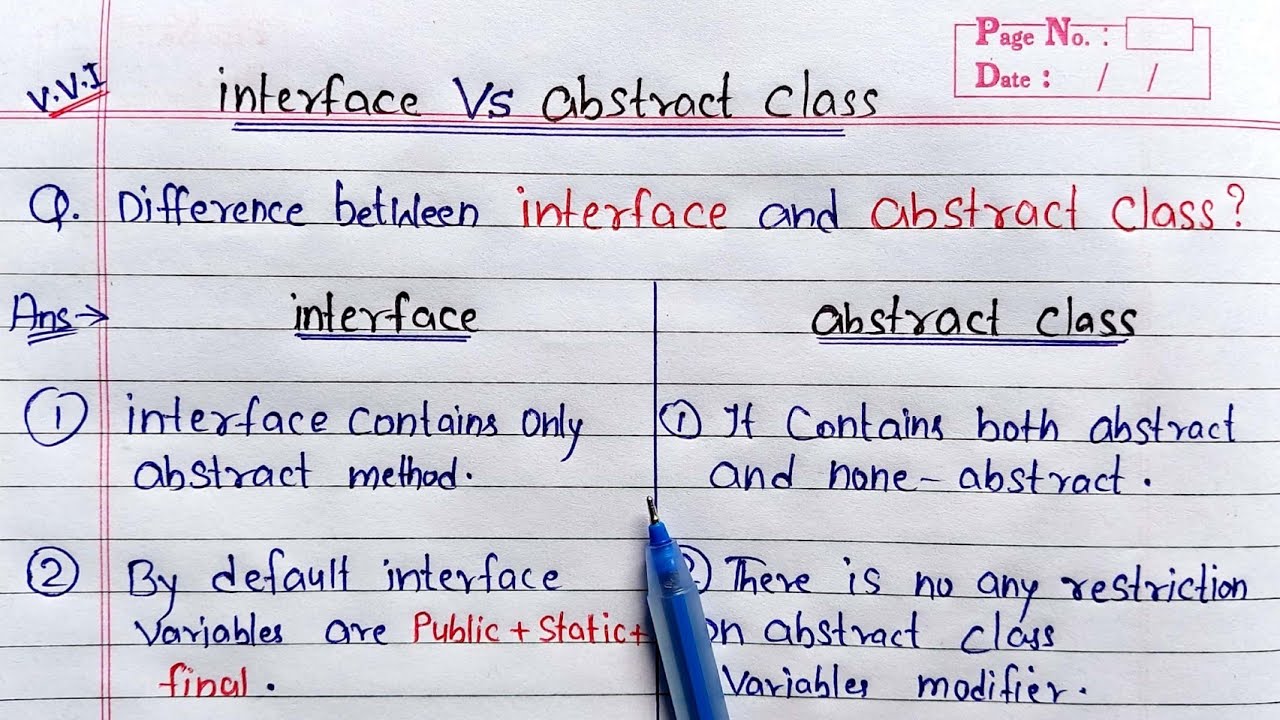 Page No. :
Date : / /
V.V.I
interface Vs abstract class
Q. Difference between interface and abstract class?
Ans→ interface abstract class
① interface contains only
abstract method.
① It Contains both abstract
and none-abstract.
② By default interface
variables are Public + Static +
final.
② There is no any restriction
on abstract class
variables modifier.